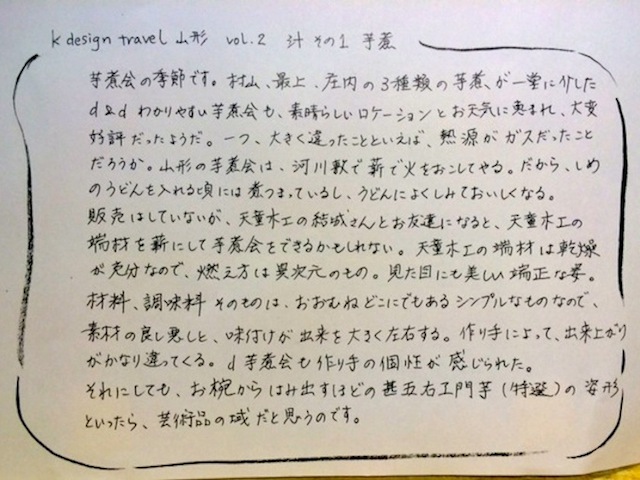 k design travel 山形 vol.2 汁 その1 芋煮
芋煮会の季節です。村山、最上、庄内の3種類の芋煮が一堂に介した
d&d わかりやすい芋煮会も、素晴らしいロケーションとお天気に恵まれ、大変
好評だったようだ。一つ、大きく違ったことといえば、熱源がガスだったこと
だろうか。山形の芋煮会は、河川敷で薪で火をおこしてやる。だから、しめ
のうどんを入れる頃には煮つまっているし、うどんによくしみておいしくなる。
販売はしていないが、天童木工の結城さんとお友達になると、天童木工の
端材を薪にして芋煮会をできるかもしれない。天童木工の端材は乾燥
が充分なので、燃え方は異次元のもの。見た目にも美しい端正な姿。
材料、調味料そのものは、おおむねどこにでもあるシンプルなものなので、
素材の良し悪しと、味付けが出来を大きく左右する。作り手によって、出来上がり
がかなり違ってくる。d芋煮会も作り手の個性が感じられた。
それにしても、お椀からはみ出すほどの甚五右エ門芋(特選)の姿形
といったら、芸術品の域だと思うのです。